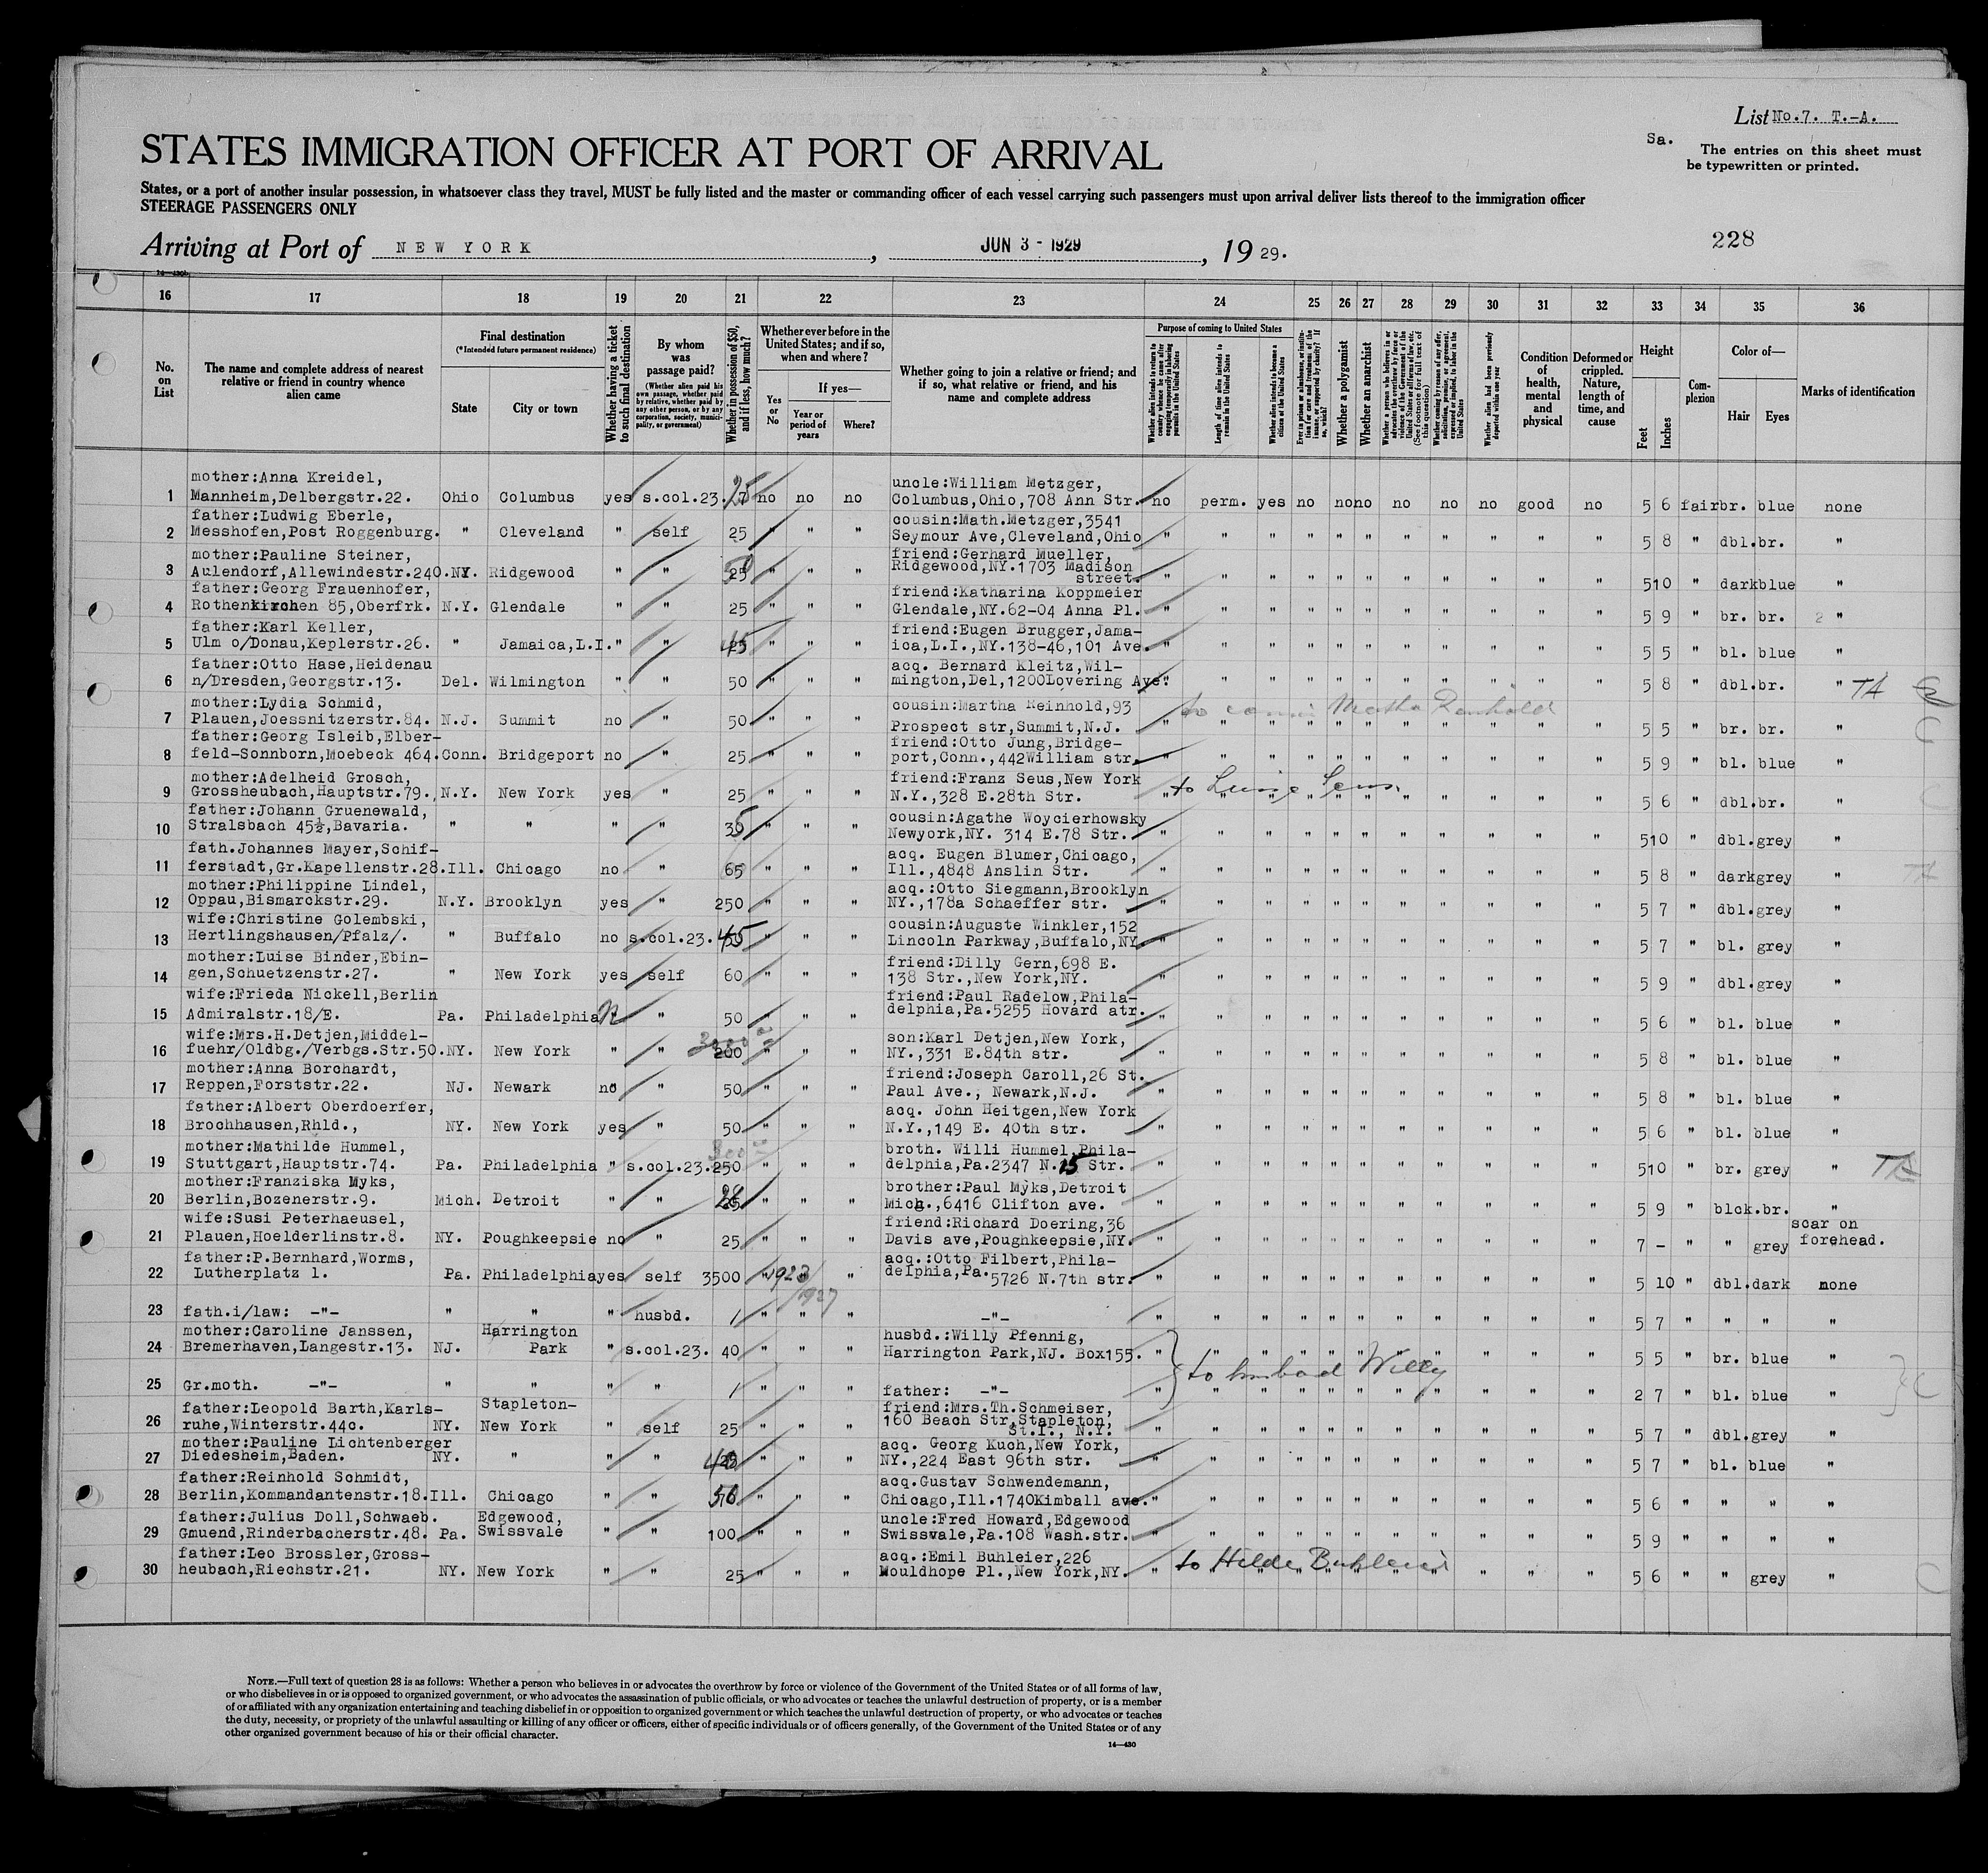 List No.7. T.-A.
Sa.
The entries on this sheet must
be typewritten or printed.
STATES IMMIGRATION OFFICER AT PORT OF ARRIVAL
States, or a port of another insular possession, in whatsoever class they travel, MUST be fully listed and the master or commanding officer of each vessel carrying such passengers must upon arrival deliver lists thereof to the immigration officer
STEERAGE PASSENGERS ONLY
Arriving at Port of NEW YORK, JUN 3 - 1929, 19 29.
228
16 17 18 19 20 21 22 23 24 25 26 27 28 29 30 31 32 33 34 35 36
No. on List
The name and complete address of nearest relative or friend in country whence alien came
Final destination
(*Intended future permanent residence)
State
City or town
Whether having a ticket to such final destination
By whom was passage paid?
(Whether alien paid his own passage, whether paid by relative, whether paid by any other person, or by any corporation, society, municipality, or government)
Whether in possession of $50, and if less, how much?
Whether ever before in the United States; and if so, when and where?
Yes or No
If yes—
Year or period of years
Where?
Whether going to join a relative or friend; and if so, what relative or friend, and his name and complete address
Purpose of coming to United States
Whether alien intends to return to country whence he came after engaging temporarily in laboring pursuits in the United States
Length of time alien intends to remain in the United States
Whether alien intends to become a citizen of the United States
Whether a polygamist
Whether an anarchist
Whether alien had been previously deported within one year
Condition of health, mental and physical
Deformed or crippled. Nature, length of time, and cause
Height
Feet
Inches
Complexion
Color of—
Hair
Eyes
Marks of identification
mother:Anna Kreidel, uncle:William Metzger,
1 Mannheim,Delbergstr.22. Ohio Columbus yes s.col.23. 25 no no no Columbus,Ohio,708 Ann Str. no perm. yes no no no no no no good no 5 6 fair br. blue none
father:Ludwig Eberle, cousin:Math.Metzger,3541
2 Messhofen,Post Roggenburg. " Cleveland " self 25 " " " Seymour Ave,Cleveland,Ohio " " " " " " " " " " " 5 8 " dbl.br. "
mother:Pauline Steiner, friend:Gerhard Mueller,
3 Aulendorf,Allewindestr.240.NY. Ridgewood " " " " " Ridgewood,NY.1703 Madison street. " " " " " " " " " " " 5 10 " dark blue "
father:Georg Frauenhofer, friend:Katharina Koppmeier
4 Rothenkirchen 85,Oberfrk. N.Y. Glendale " " 25 " " " Glendale,NY.62-04 Anna Pl. " " " " " " " " " " " 5 9 " br. br. "
father:Karl Keller, friend:Eugen Brugger,Jama-
5 Ulm o/Donau,Keplerstr.26. " Jamaica,L.I. " " 45 " " " ica,L.I.,NY.138-46,101 Ave. " " " " " " " " " " " 5 5 " bl. blue "
father:Otto Hase,Heidenau acq. Bernard Kleitz,Wil-
6 n/Dresden,Georgstr.13. Del. Wilmington " " 50 " " " mington,Del,1200Lovering Ave. " " " " " " " " " " " 5 8 " dbl.br. " TA
mother:Lydia Schmid, cousin:Martha Reinhold,93 to cousin Martha Reinhold
7 Plauen,Joessnitzerstr.84. N.J. Summit no " 50 " " " Prospect str,Summit,N.J. " " " " " " " " " " " 5 5 " br. br. "
father:Georg Isleib,Elber- friend:Otto Jung,Bridge-
8 feld-Sonnborn,Moebeck 464.Conn. Bridgeport no " 25 " " " port,Conn.,442William str. " " " " " " " " " " " 5 9 " bl. blue "
mother:Adelheid Grosch, friend:Franz Seus,New York to Luise Seus
9 Grossheubach,Hauptstr.79. N.Y. New York yes " 25 " " " N.Y.,328 E.28th Str. " " " " " " " " " " " 5 6 " dbl.br. "
father:Johann Gruenewald, cousin:Agathe Woycierhowsky
10 Stralsbach 45½,Bavaria. " " " " 35 " " " Newyork,NY. 314 E.78 Str. " " " " " " " " " " " 5 10 " dbl.grey "
fath.Johannes Mayer,Schif- acq. Eugen Blumer,Chicago,
11 ferstadt,Gr.Kapellenstr.28.Ill. Chicago no " 65 " " " Ill.,4848 Anslin Str. " " " " " " " " " " " 5 8 " dark grey " TA
mother:Philippine Lindel, acq.:Otto Siegmann,Brooklyn
12 Oppau,Bismarckstr.29. N.Y. Brooklyn yes " 250 " " " NY.,178a Schaeffer str. " " " " " " " " " " " 5 7 " dbl.grey "
wife:Christine Golembski, cousin:Auguste Winkler,152
13 Hertlingshausen/Pfalz/. " Buffalo no s.col.23. 45 " " " Lincoln Parkway,Buffalo,NY. " " " " " " " " " " " 5 7 " bl. grey "
mother:Luise Binder,Ebin- friend:Dilly Gern,698 E.
14 gen,Schuetzenstr.27. " New York yes self 60 " " " 138 Str.,New York,NY. " " " " " " " " " " " 5 9 " dbl.grey "
wife:Frieda Nickell,Berlin friend:Paul Radelow,Phila-
15 Admiralstr.18/E. Pa. Philadelphia " 50 " " " delphia,Pa.5255 Hovard atr. " " " " " " " " " " " 5 6 " bl. blue "
wife:Mrs.H.Detjen,Middel- son:Karl Detjen,New York,
16 fuehr/Oldbg./Verbgs.Str.50.NY. New York " " 200 " " " NY.,331 E.84th str. " " " " " " " " " " " 5 8 " bl. blue "
mother:Anna Borchardt, friend:Joseph Caroll,26 St.
17 Reppen,Forststr.22. NJ. Newark no " 50 " " " Paul Ave., Newark,N.J. " " " " " " " " " " " 5 8 " bl. blue "
father:Albert Oberdoerfer, acq. John Heitgen,New York
18 Brochhausen,Rhld., NY. New York yes " 50 " " " N.Y.,149 E. 40th str. " " " " " " " " " " " 5 6 " bl. blue "
mother:Mathilde Hummel, 300 broth. Willi Hummel,Phila-
19 Stuttgart,Hauptstr.74. Pa. Philadelphia " s.col.23.250 " " " delphia,Pa.2347 N.15 Str. " " " " " " " " " " " 5 10 " br. grey " TA
mother:Franziska Myks, brother:Paul Myks,Detroit
20 Berlin,Bozenerstr.9. Mich. Detroit " " " " " Mich.,6416 Clifton ave. " " " " " " " " " " " 5 9 " blck.br. "
wife:Susi Peterhaeusel, friend:Richard Doering,36 scar on
21 Plauen,Hoelderlinstr.8. NY. Poughkeepsie no " 25 " " " Davis ave,Poughkeepsie,NY. " " " " " " " " " " " 7 - " " grey forehead.
father:P.Bernhard,Worms, acq.:Otto Filbert,Phila-
22 Lutherplatz 1. Pa. Philadelphia yes self 3500 " 1923/1927 " delphia,Pa.5726 N.7th str. " " " " " " " " " " " 5 10 " dbl.dark none
23 fath.i/law: -"- " " " husbd. / " " " -"- " " " " " " " " " " " 5 7 " " " "
mother:Caroline Janssen, Harrington husbd.:Willy Pfennig,
24 Bremerhaven,Langestr.13. NJ. Park " s.col.23. 40 " " " Harrington Park,NJ. Box155. " " " " " " " " " " " 5 5 " br. blue "
to husband Willy
25 Gr.moth. -"- " " " " / " " " father: -"- " " " " " " " " " " " 2 7 " bl. blue "
father:Leopold Barth,Karls- Stapleton- friend:Mrs.Th.Schmeiser,
26 ruhe,Winterstr.44c. NY. New York " self 25 " " " 160 Beach Str,Stapleton, St.I., N.Y. " " " " " " " " " " " 5 7 " dbl.grey "
mother:Pauline Lichtenberger acq. Georg Kuch,New York,
27 Diedesheim,Baden. NY. " " " " " " NY.,224 East 96th str. " " " " " " " " " " " 5 7 " bl. blue "
father:Reinhold Schmidt, acq.Gustav Schwendemann,
28 Berlin,Kommandantenstr.18.Ill. Chicago " " " " " Chicago,Ill.1740Kimball ave. " " " " " " " " " " " 5 6 " " " "
father:Julius Doll,Schwaeb. Edgewood, uncle:Fred Howard,Edgewood
29 Gmuend,Rinderbacherstr.48. Pa. Swissvale " " 100 " " " Swissvale,Pa.108 Wash.str. " " " " " " " " " " " 5 9 " " " "
father:Leo Brossler,Gross- acq.:Emil Buhleier,226 to Hilde Buhleier
30 heubach,Riechstr.21. NY. New York " " 25 " " " Mouldhope Pl.,New York,NY. " " " " " " " " " " " 5 6 " " grey "
NOTE.—Full text of question 28 is as follows: Whether a person who believes in or advocates the overthrow by force or violence of the Government of the United States or of all forms of law,
or who disbelieves in or is opposed to organized government, or who advocates the assassination of public officials, or who advocates or teaches the unlawful destruction of property, or is a member
of or affiliated with any organization entertaining and teaching disbelief in or opposition to organized government or which teaches the unlawful destruction of property, or who advocates or teaches
the duty, necessity, or propriety of the unlawful assaulting or killing of any officer or officers, either of specific individuals or of officers generally, of the Government of the United States or of any
other organized government because of his or their official character.
14—430